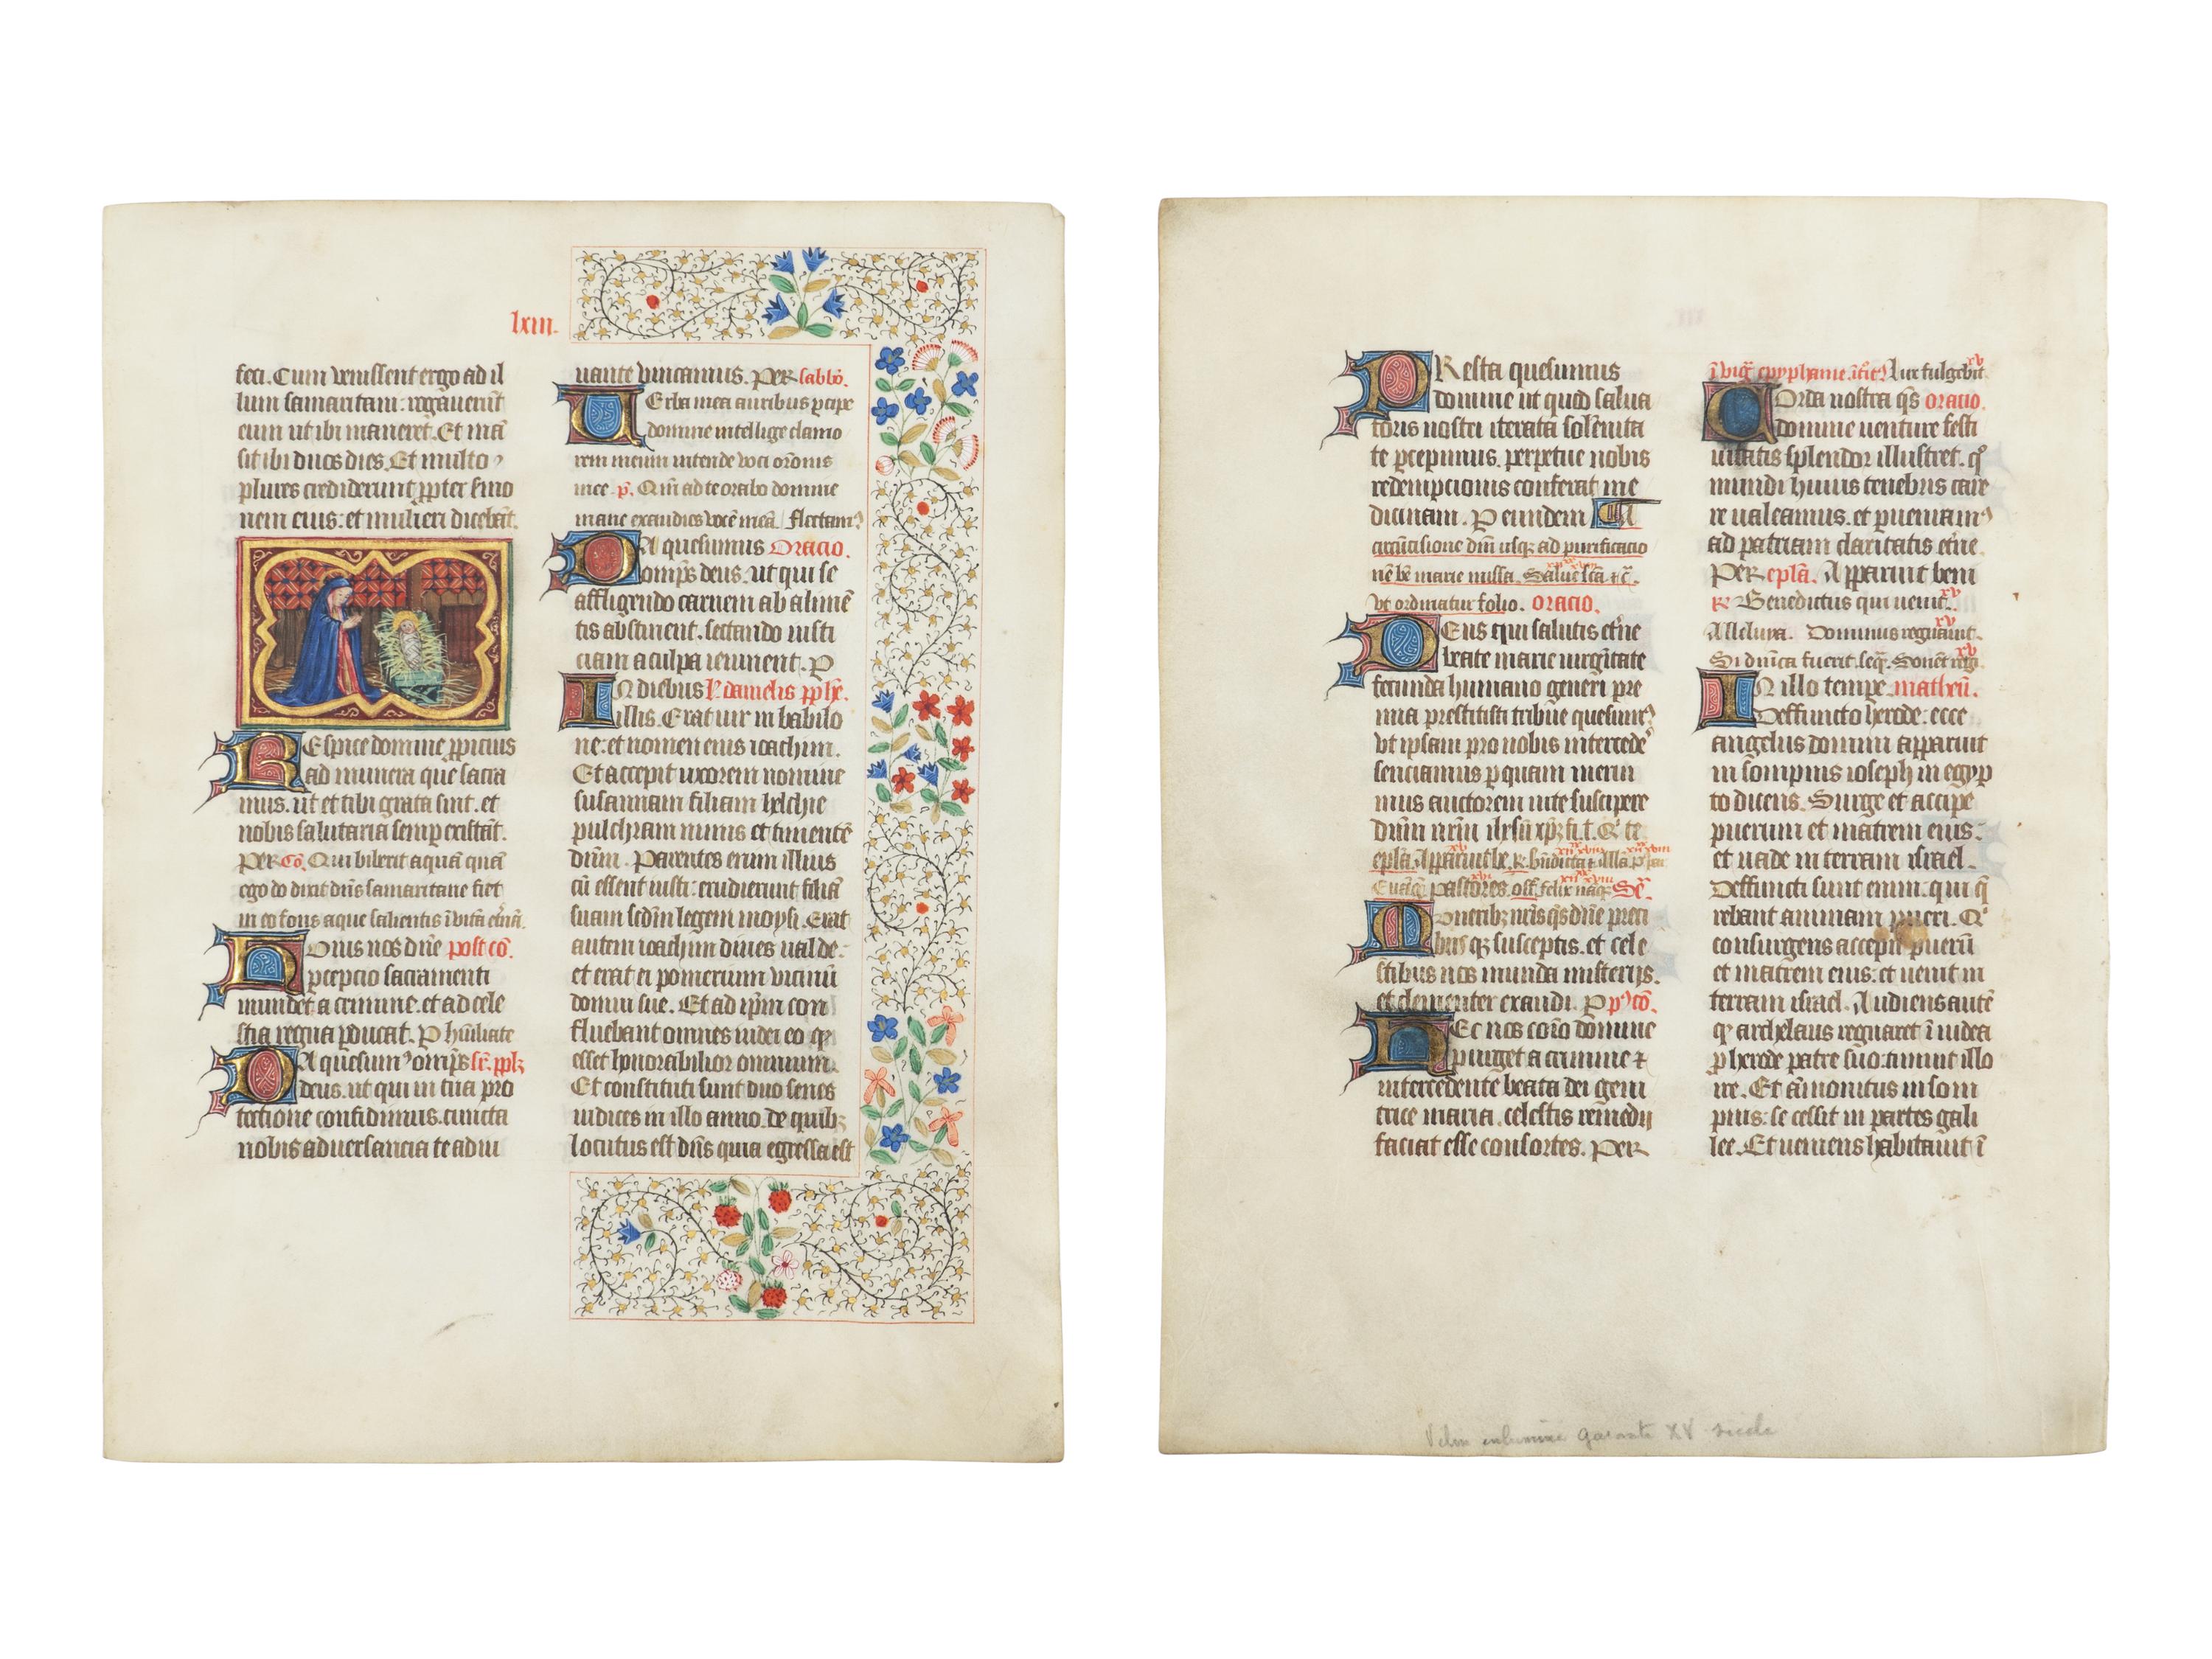 lxiii.
feci. Cum venissent ergo ad il
lum samaritani: rogauerūt
eum ut ibi maneret. Et mā
sit ibi duos dies. Et multo
plures crediderunt ꝓpter ſmo
nem eius: et mulieri dicebāt.
REspice domine ꝓpicius
ad munera que sacra
mus. ut et tibi grata sint. et
nobis salutaria semꝑ existāt.
PER Cō. Qui biberit aquā quā
ego do dixit dn̄s samaritane fiet
in eo fons aque salientis ī vitā et̄nā.
HVius nos dn̄e post cō.
ꝑcepcio sacramenti
mundet a crimine. et ad cele
stia regna ꝑducat. P humiliate
DA quesum⁹ omp̄s sr̄. pp̄lꝫ
deus. ut qui in tua pro
tectione confidimus. cuncta
nobis aduersancia te adiu
uante vincamus. PER sabbō.
VErba mea auribus ꝑcipe
domine intellige clamo
rem meum intende voci or̄onis
mee. p̄. Qm̄ ad te orabo domine
mane exaudies vocē meā. Flectam⁹
DA quesumus Oracio.
omp̄s deus. ut qui se
affligendo carnem ab alimē
tis abstinent. sectando iusti
ciam a culpa ieiunent. P
IN diebus l̄. danielis ꝓphe.
illis. Erat uir in babilo
ne: et nomen eius ioachim.
Et accepit uxorem nomine
susannam filiam helchie
pulchram nimis et timentē
dn̄m. Parentes enim illius
cū essent iusti: erudierunt filiā
suam scdm̄ legem moysi. Erat
autem ioachim diues ualde:
et erat ei pomerium vicinū
domui sue. Et ad ip̄m con
fluebant omnes iudei eo qꝫ
esset honorabilior omnium.
Et constituti sunt duo senes
iudices in illo anno. de quibꝫ
locutus est dn̄s quia egressa est
PResta quesumus
domine ut quod salua
toris nostri iterata solēnita
te ꝑcepimus. perpetue nobis
redempcionis conferat me
dicinam. P eundem A
circūcisione dn̄i usqꝫ ad purificacio
nē bē marie missa. Salue sc̄a ⁊c̄.
vt ordinatur folio. oracio.
DEus qui salutis et̄ne
beate marie uirgītate
fecunda humano generi pre
mia prestitisti tribue quesum⁹
vt ipsam pro nobis intercede
senciamus ꝑ quam meru
imus auctorem uite suscipere
dn̄m nr̄m ih̄sū xp̄m fi. t. Q te
epl̄a. Apparuit be.
Euāḡ. pastores. off. felix naqꝫ Sē.
MUneribꝫ nr̄is qs̄ dn̄e preci
busqꝫ susceptis. et cele
stibus nos munda misterijs.
et clementer exaudi. P p⁹ cō.
HEc nos cōio domine
purget a crimine ⁊
intercedente beata dei geni
trice maria. celestis remedij
faciat esse consortes. PER
ī viḡ. epyphanie ītr̄oit⁹ Lux fulgebit
xv
COrda nostra qs̄ oracio.
domine venture festi
uitatis splendor illustret. q̄
mundi huius tenebris care
re ualeamus. et ꝑueniam⁹
ad patriam claritatis et̄ne.
PER epl̄a. Apparuit beni
R̄ Benedictus qui uenit. xv
Alleluya. Dominus regnauit. xv
Si dn̄ica fuerit. seq̄.
IN illo tempe. matheū.
Deffuncto herode: ecce
angelus domini apparuit
in sompnis ioseph in egyp
to dicens. Surge et accipe
puerum et matrem eius:
et uade in terram israel.
Deffuncti sunt enim: qui q̄
rebant animam pueri. Q
consurgens accepit puerū
et matrem eius: et uenit in
terram israel. Audiens autē
qꝫ archelaus regnaret ī iudea
ꝓ herode patre suo: timuit illo
ire. Et āmonitus in som
pnis: secessit in partes gali
lee. Et ueniens habitauit ī
XV siecle